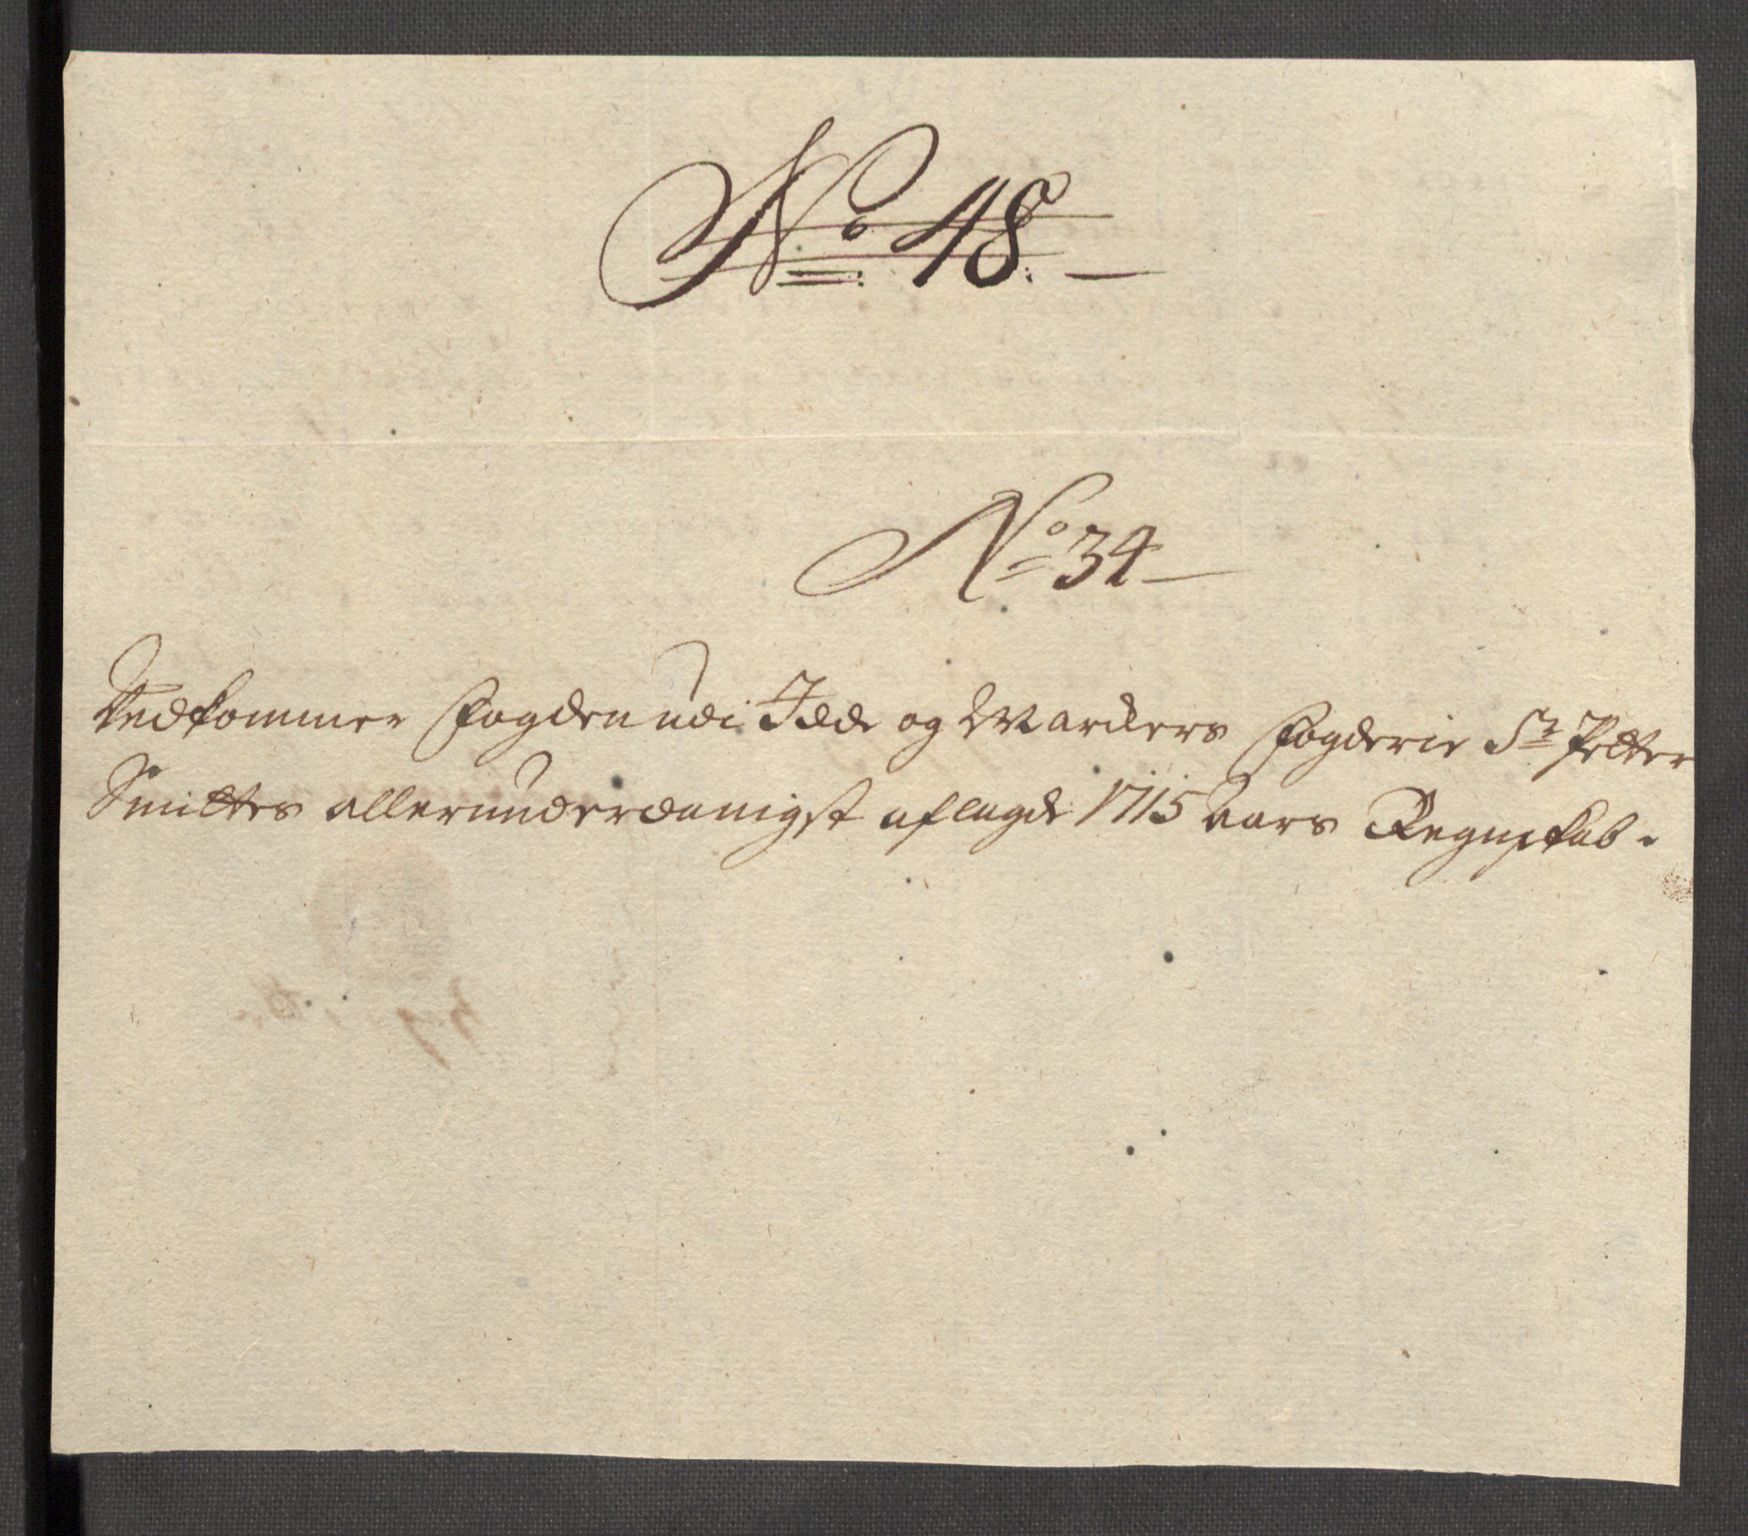 No 48.
No 34
Vedkommer Fogden udi Idde og Markers Fogderie Sr. Petter
Smittes allerunderdanigst aflagde 1715 Aars Regnskab.